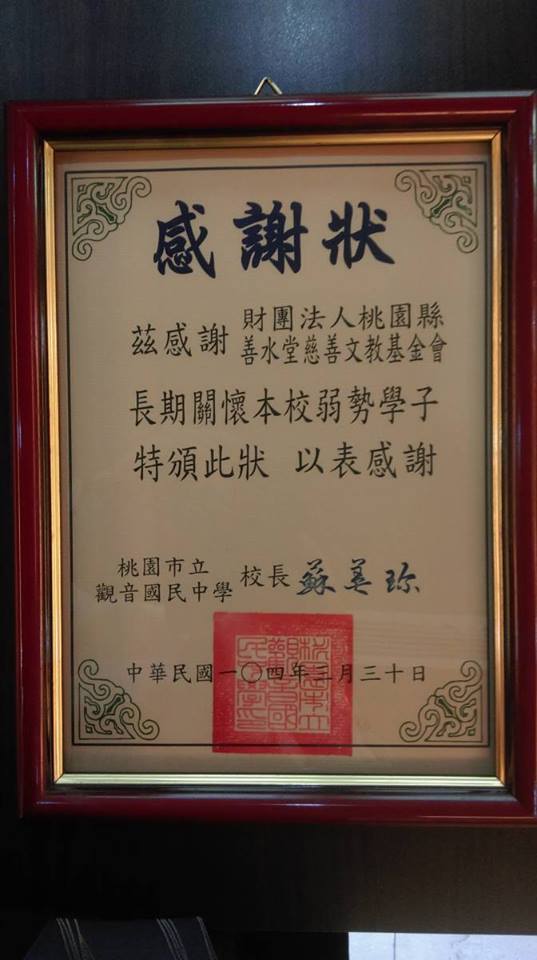 感謝狀
茲感謝 財團法人桃園縣
善水堂慈善文教基金會
長期關懷本校弱勢學子
特頒此狀 以表感謝
桃園市立
觀音國民中學 校長 蘇美珍
中華民國一〇四年三月三十日